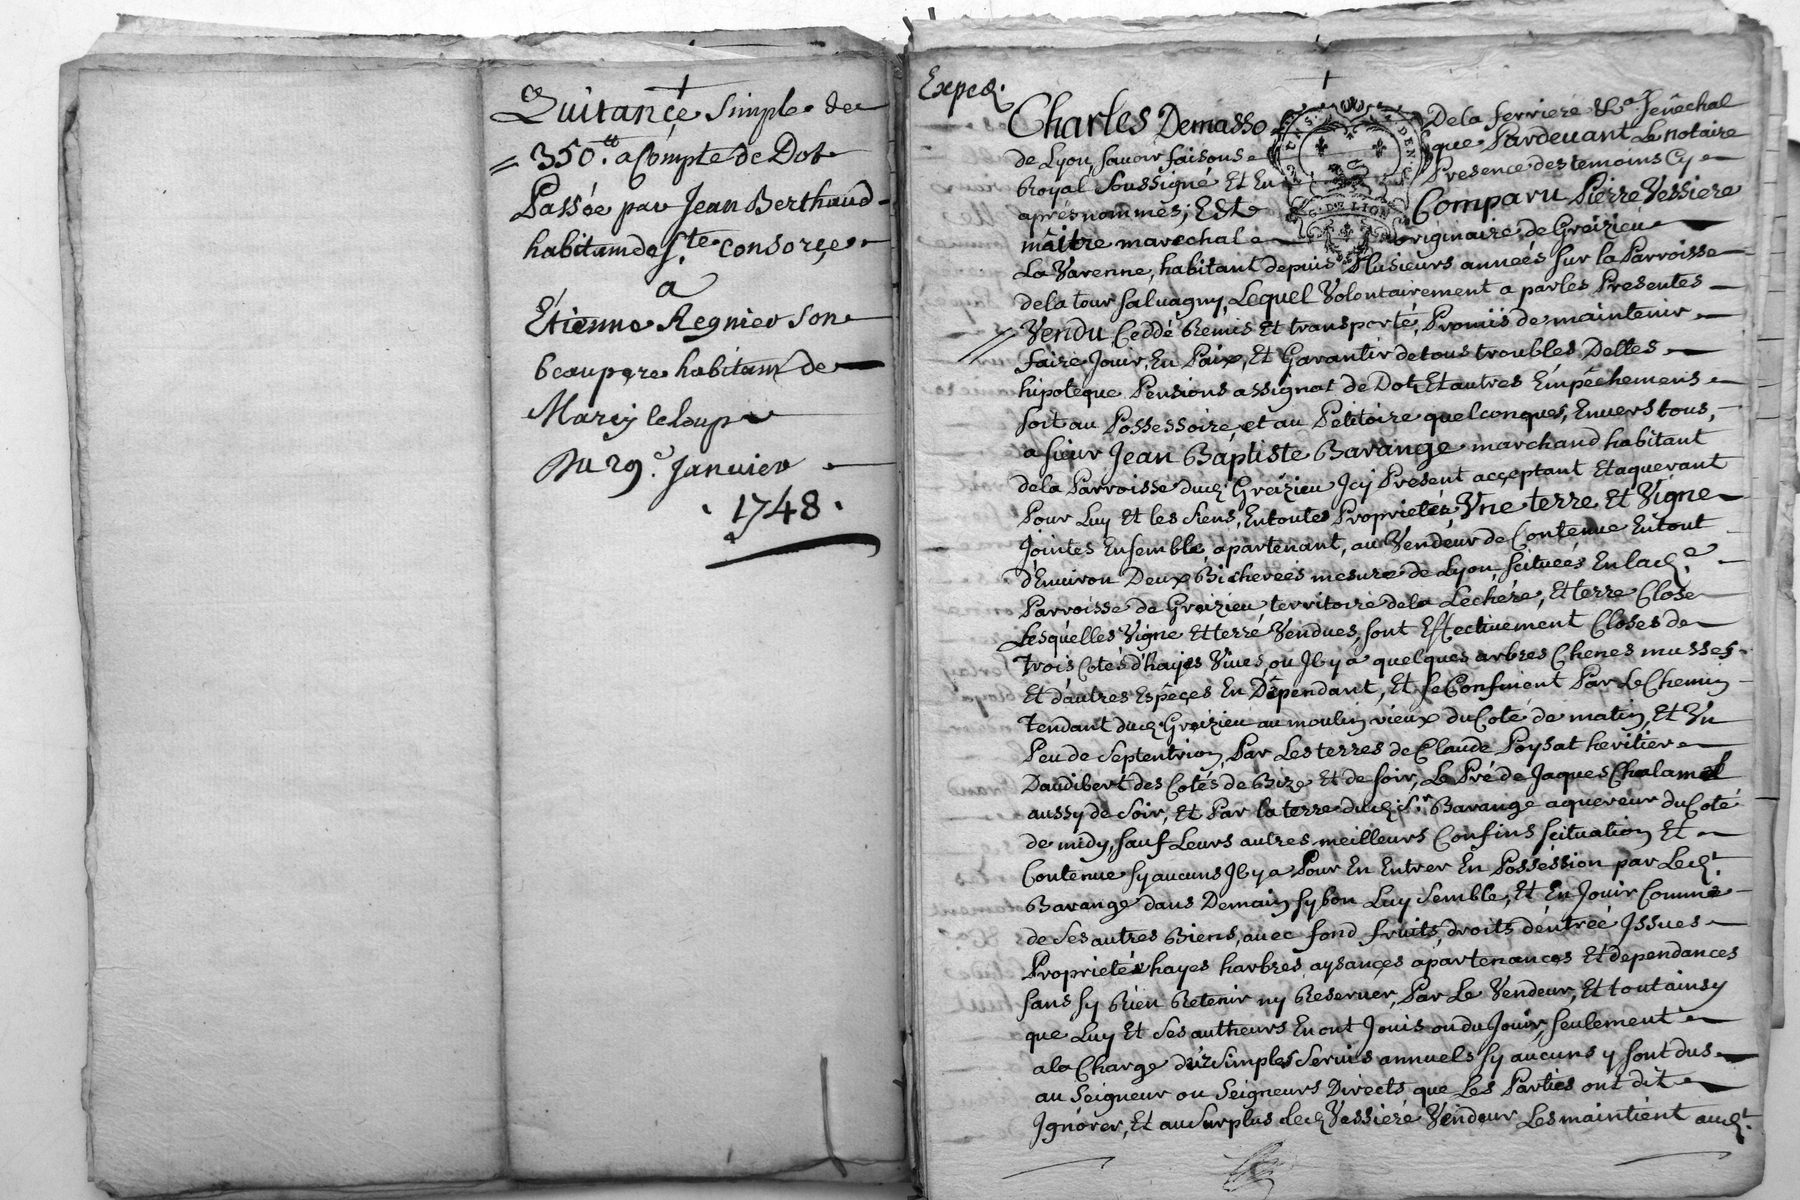 Quitance simple de
350.tt a Compte de Dot
Passée par Jean Berthaud
habitam de Ste. Consorçe
a
Etienne Regnier son
beaupere habitant de
Marcy le loup
Du 29e. Janvier
. 1748 .
Exped.
Charles Demasso De la ferriere &a Senêchal
de Lyon, Savoir faisons que Pardevant Le notaire
Royal Soussigné Et En Presence des temoins Cy
aprés nommés, Est Comparu Pierre Vessiere
mâitre marechal originaire de Greizieu
La Varenne, habitant depuis Plusieurs anneés sur la Parroisse
de la tour salvagny, Lequel Volontairement a par les Presentes
Vendu Ceddé Remis Et transporté, Promis de maintenir
faire Jouir, En Paix, Et Garantir de tous troubles, Dettes
hipoteque Pensions assignat de Dot, Et autres Empêchemens
soit au Possessoire, et au Petitoire quelconques, Envers tous,
a sieur Jean Baptiste Barange marchand habitant
de la Parroisse dud. Greizieu Jcy Present acceptant Et aquerant
Pour Luy Et les siens, En toutes Proprietés Vne terre Et Vigne
Jointes Ensemble, apartenant, au Vendeur de Contenue En tout
d'Environ Deux Bicherées mesure de Lyon, scituées En lad.e
Parroisse de Greizieu territoire de la Lechére, Et terre Close
Lesquelles Vigne Et terre Vendues, sont Effectivement Closes de
trois Cotés d'hayes Vives, ou Jl y a quelques arbres Chenes musses
Et d'autres Espêçes En Dêpendant, Et se Confinent Par Le Chemin
tendant dud. Greizieu au moulin vieux du Coté de matin, Et Vn
Peu de Septentrion, Par Les terres de Claude Poysat heritier
Daudibert des Cotés de Bize Et de soir, Le Pré de Jaques Chalamel
aussy de Soir, Et Par la terre dud. Sr. Barange aquereur du Coté
de midy, sauf Leurs autres meilleurs Confins scituation Et
Contenue sy aucuns Jl y a Pour En Entrer En Possession par Led.t
Barange dans Demain sy bon Luy Semble, Et En Jouir Comme
de Ses autres Biens, avec fond fruits, droits d'entrée Jssues
Proprietés hayes harbres, aysançes apartenances Et dependances
sans sy Rien Retenir ny Reserver, Par Le Vendeur, Et tout ainsy
que Luy Et Ses autheurs En ont Jouis ou du Jouir, seulement
a la Charge des Simples Servis annuels sy aucuns y sont dus
au Seigneur ou Seigneurs Directs que Les Parties ont dit
Jgnórer, Et au Surplus led. Vessiere Vendeur Les maintient aud.t